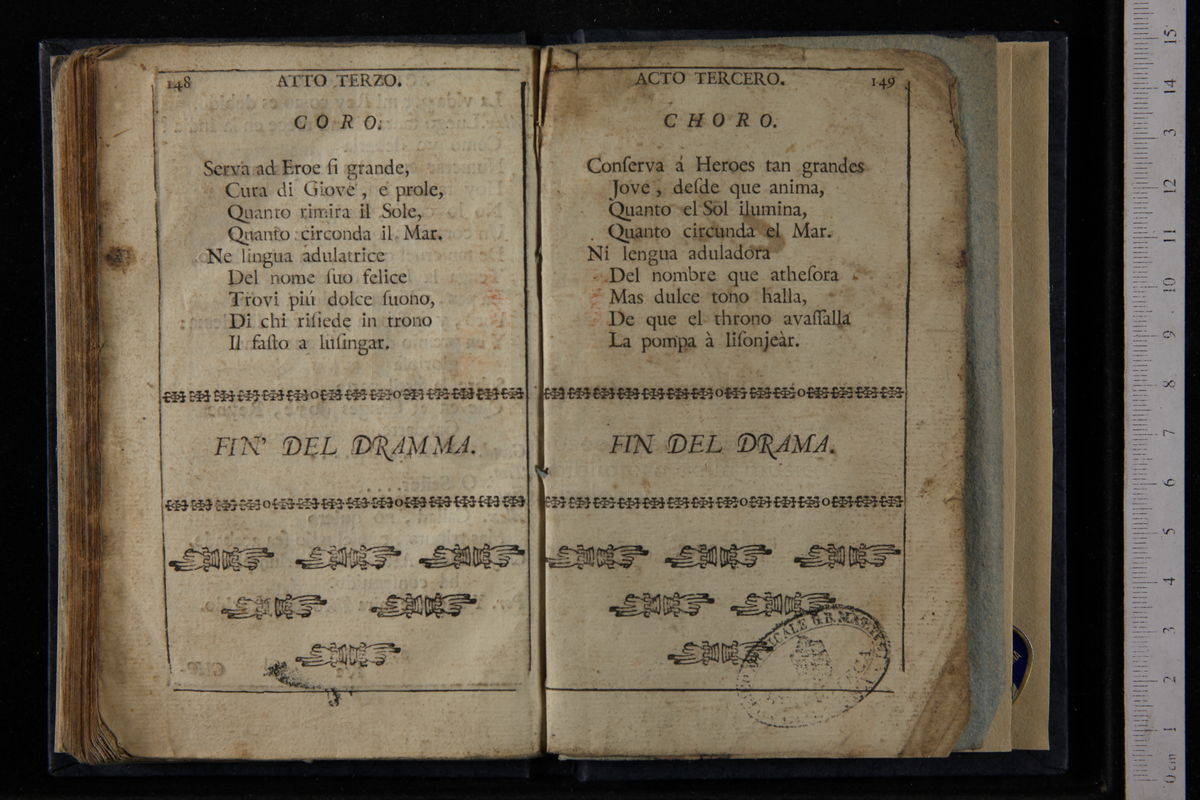 148 ATTO TERZO.
CORO.
Serva ad Eroe ſi grande,
Cura di Giove, e prole,
Quanto rimira il Sole,
Quanto circonda il Mar.
Ne lingua adulatrice
Del nome ſuo felice
Trovi piú dolce ſuono,
Di chi riſiede in trono
Il faſto a luſingar.
FIN' DEL DRAMMA.
ACTO TERCERO. 149
CHORO.
Conſerva á Heroes tan grandes
Jove, deſde que anima,
Quanto el Sol ilumina,
Quanto circunda el Mar.
Ni lengua aduladora
Del nombre que atheſora
Mas dulce tono halla,
De que el throno avaſſalla
La pompa à liſonjeàr.
FIN DEL DRAMA.
0 cm 1 2 3 4 5 6 7 8 9 10 11 12 13 14 15